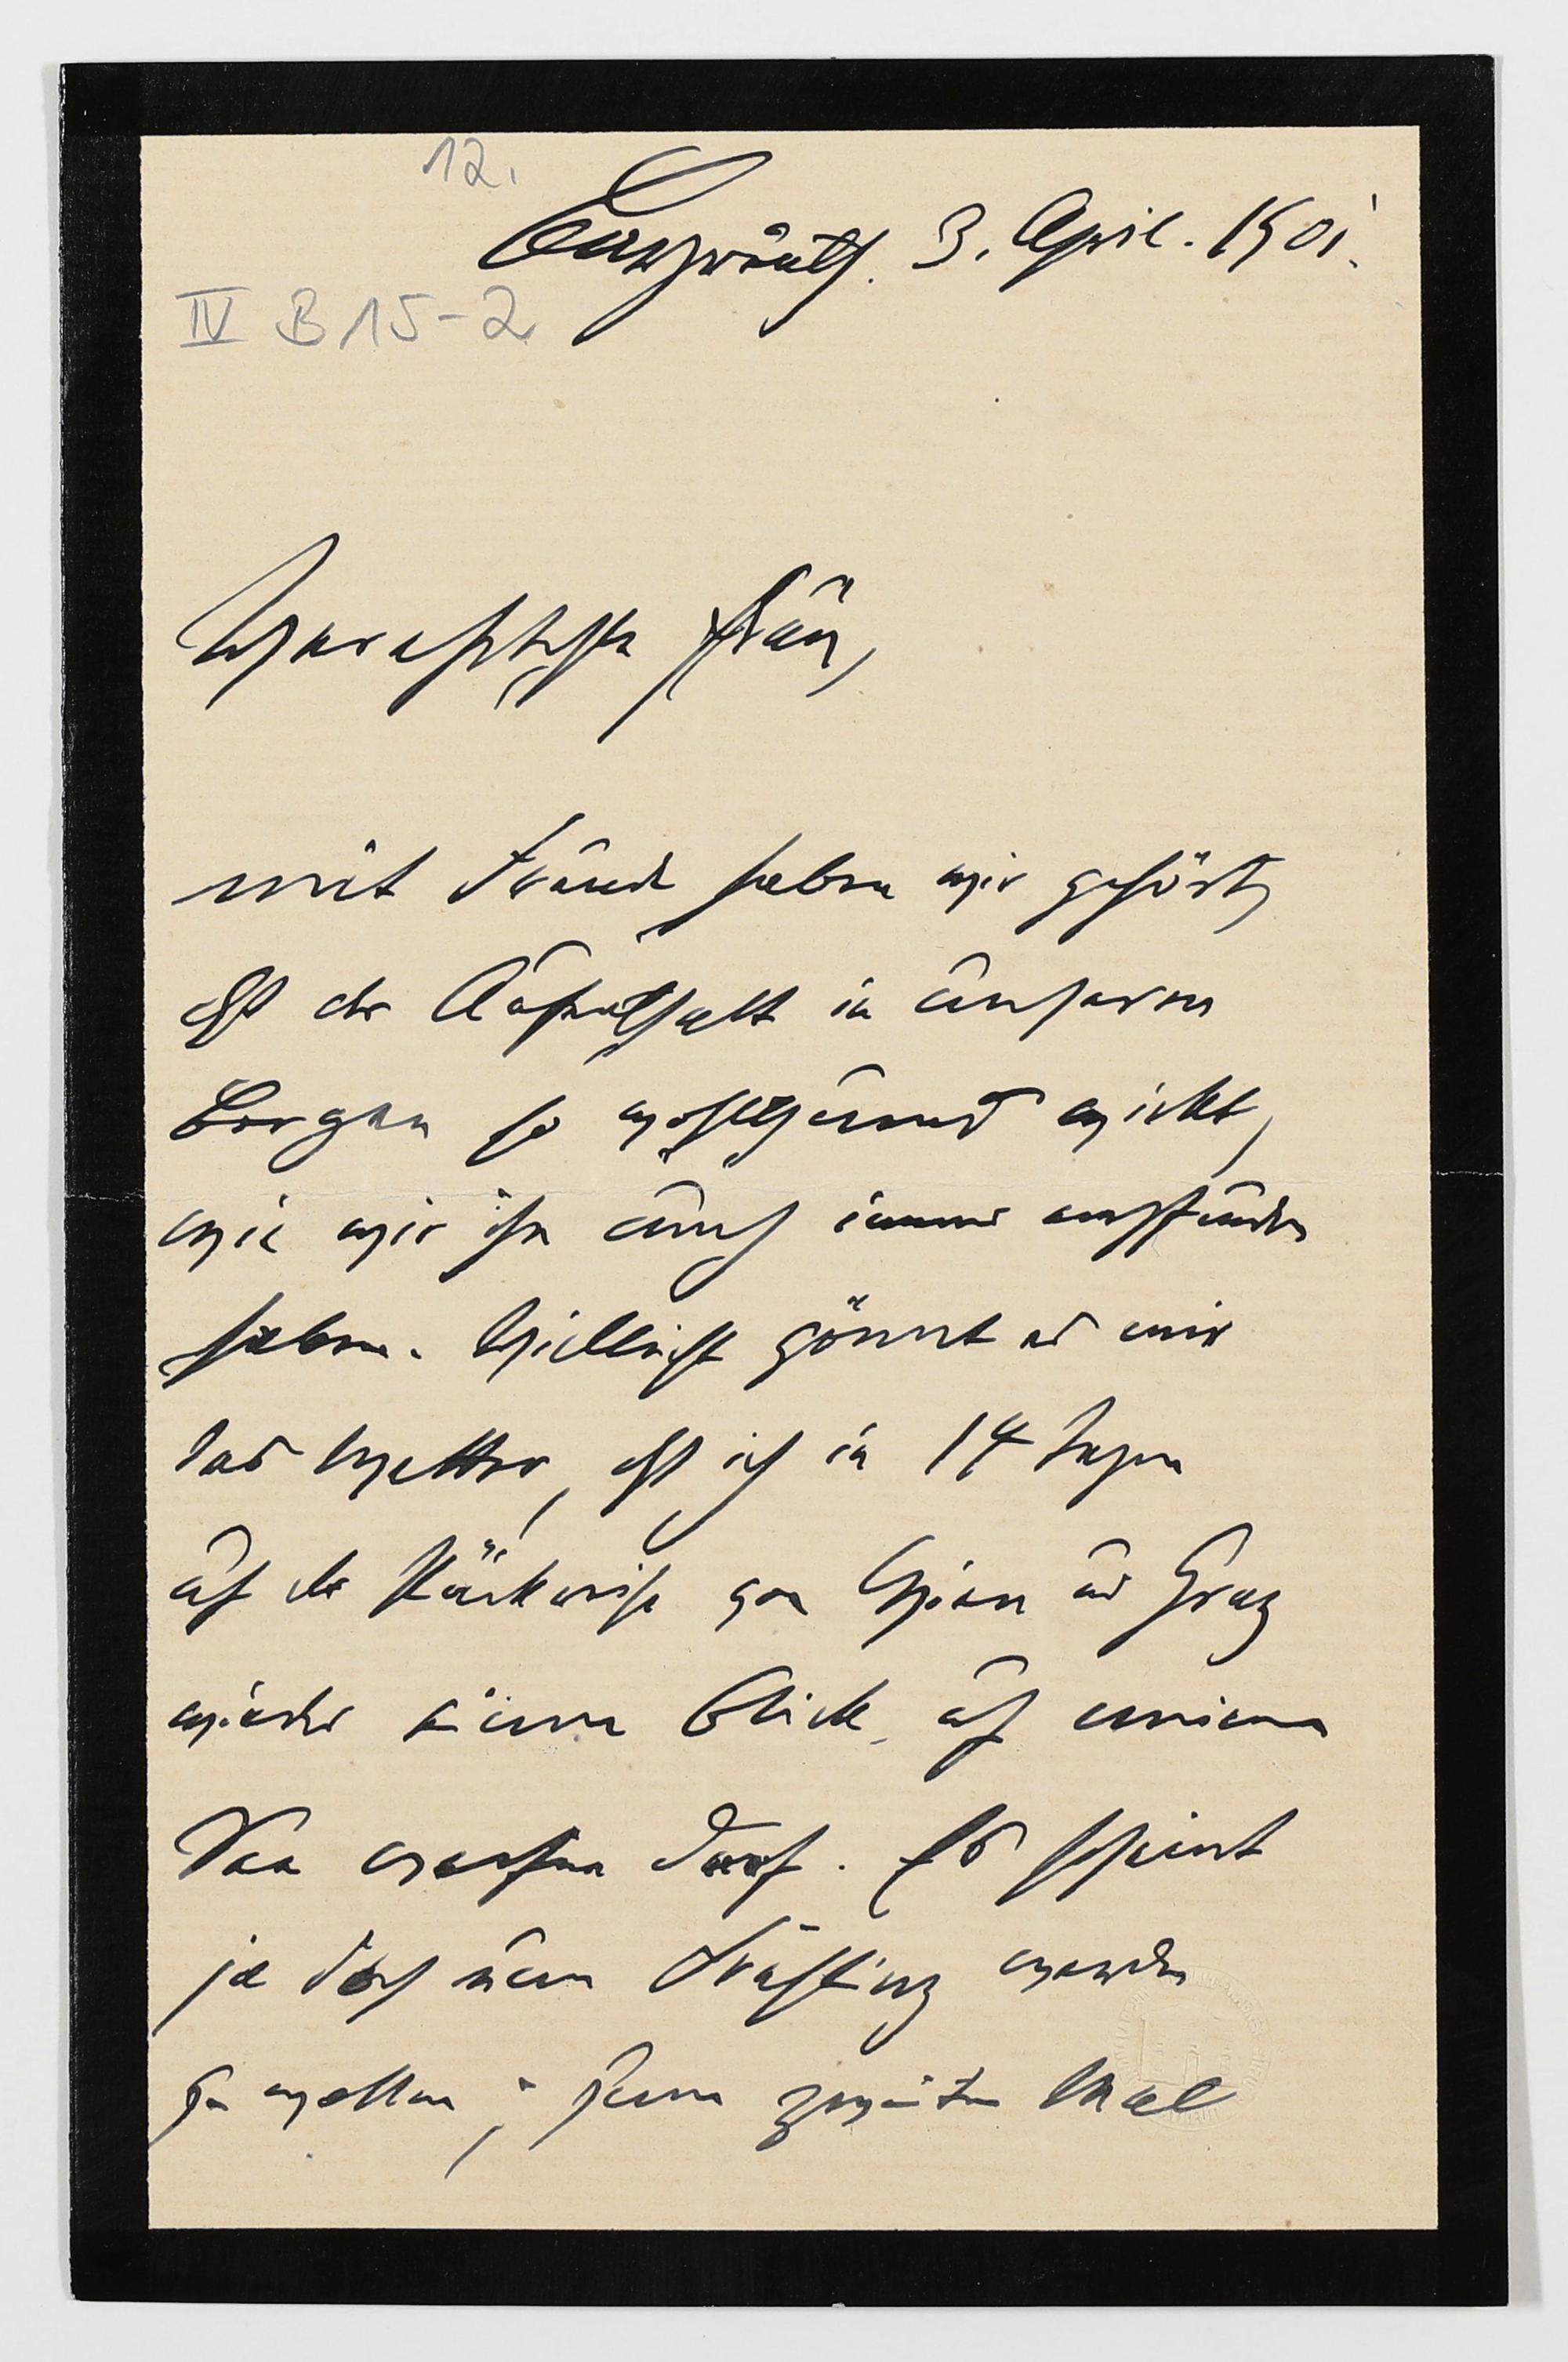 12.
Bayreuth. 3. April. 1901.
IV B 15-2
Verehrteste Frau,
mit Freude haben wir gehört,
daß der Aufenthalt in unseren
Bergen so wohlthuend wirkt,
wie wir ihn auch immer empfunden
haben. Vielleicht gönnt es mir
das Wetter, daß ich in 14 Tagen
auf der Rückreise von Wien und Graz
wieder einen Blick auf meinen
werfen darf. Es scheint
ja doch nun Frühling werden
zu wollen; zum zweiten Mal